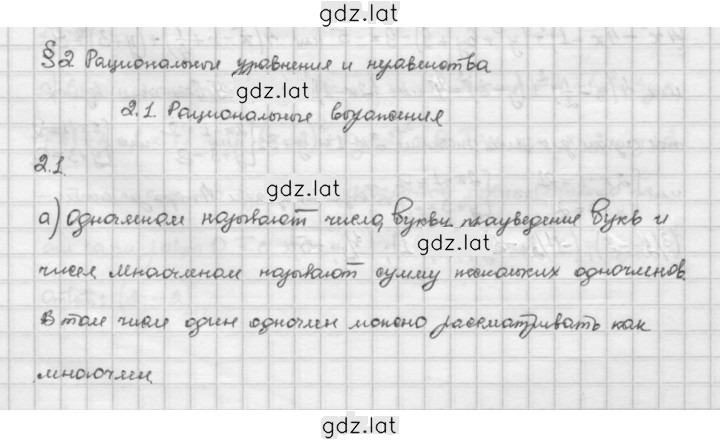 gdz.lat
§2 Рациональные уравнения и неравенства
gdz.lat
2.1. Рациональные выражения
2.1.
gdz.lat
а) Одночленом называют числа, буквы, произведение букв и
gdz.lat
чисел. Многочленом называют сумму нескольких одночленов.
В том числе один одночлен можно рассматривать как
gdz.lat
многочлен.
gdz.lat